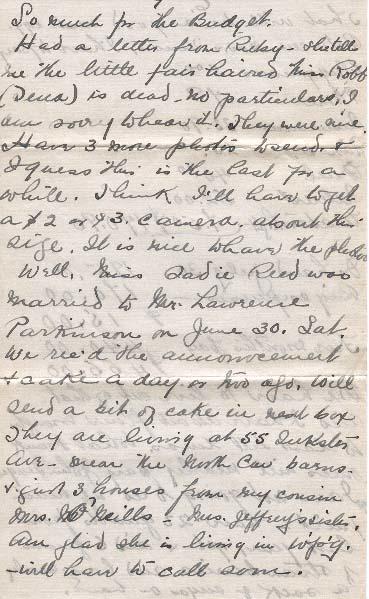 So much for the Budget.
Had a letter from Ruby - she tells
me the little fair haired Miss Robb
(Dena) is dead - no particulars, I
am sorry to hear it. They were nice.
Have 3 more photos to send. &
I guess this is the last for a
while. I think I'll have to get
a $2 or $3. camera. about this
size. It is nice to have the photos
Well, Miss Sadie Reed was
married to Mr. Lawrence
Parkinson on June 30. Sat.
We rec'd the announcement
& cake a day or two ago. Will
send a bit of cake in next box
They are living at 55 Inkster
Ave - near the North Car barns -
& just 3 houses from my cousin
Mrs. McNeills - Mrs. Jeffrey's sister.
Am glad she is living in W'p'g.
- will have to call soon.